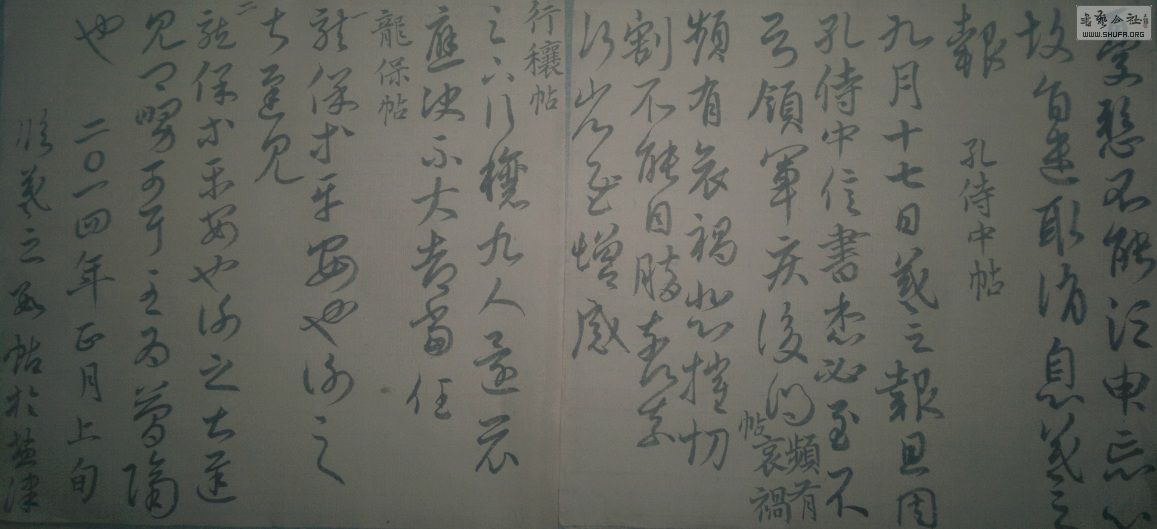 書藝公社
WWW.SHUFA.ORG
憂懸不能須臾忘心
故旬遣取消息羲之
報 孔侍中帖
九月十七日羲之報且因
孔侍中信書想必至不
知領軍疾後問
頻有哀禍帖
頻有哀禍悲摧切
割不能自勝奈何奈
何省慰增感
行穰帖
足下行穰九人還示
應決不大都當任
龍保帖
一
龍保等平安也謝之
甚遲見
二
龍保等平安也謝之甚遲
見卿舅可耳至為簡隔
也 二〇一四年正月上旬
臨羲之數帖於鹽津